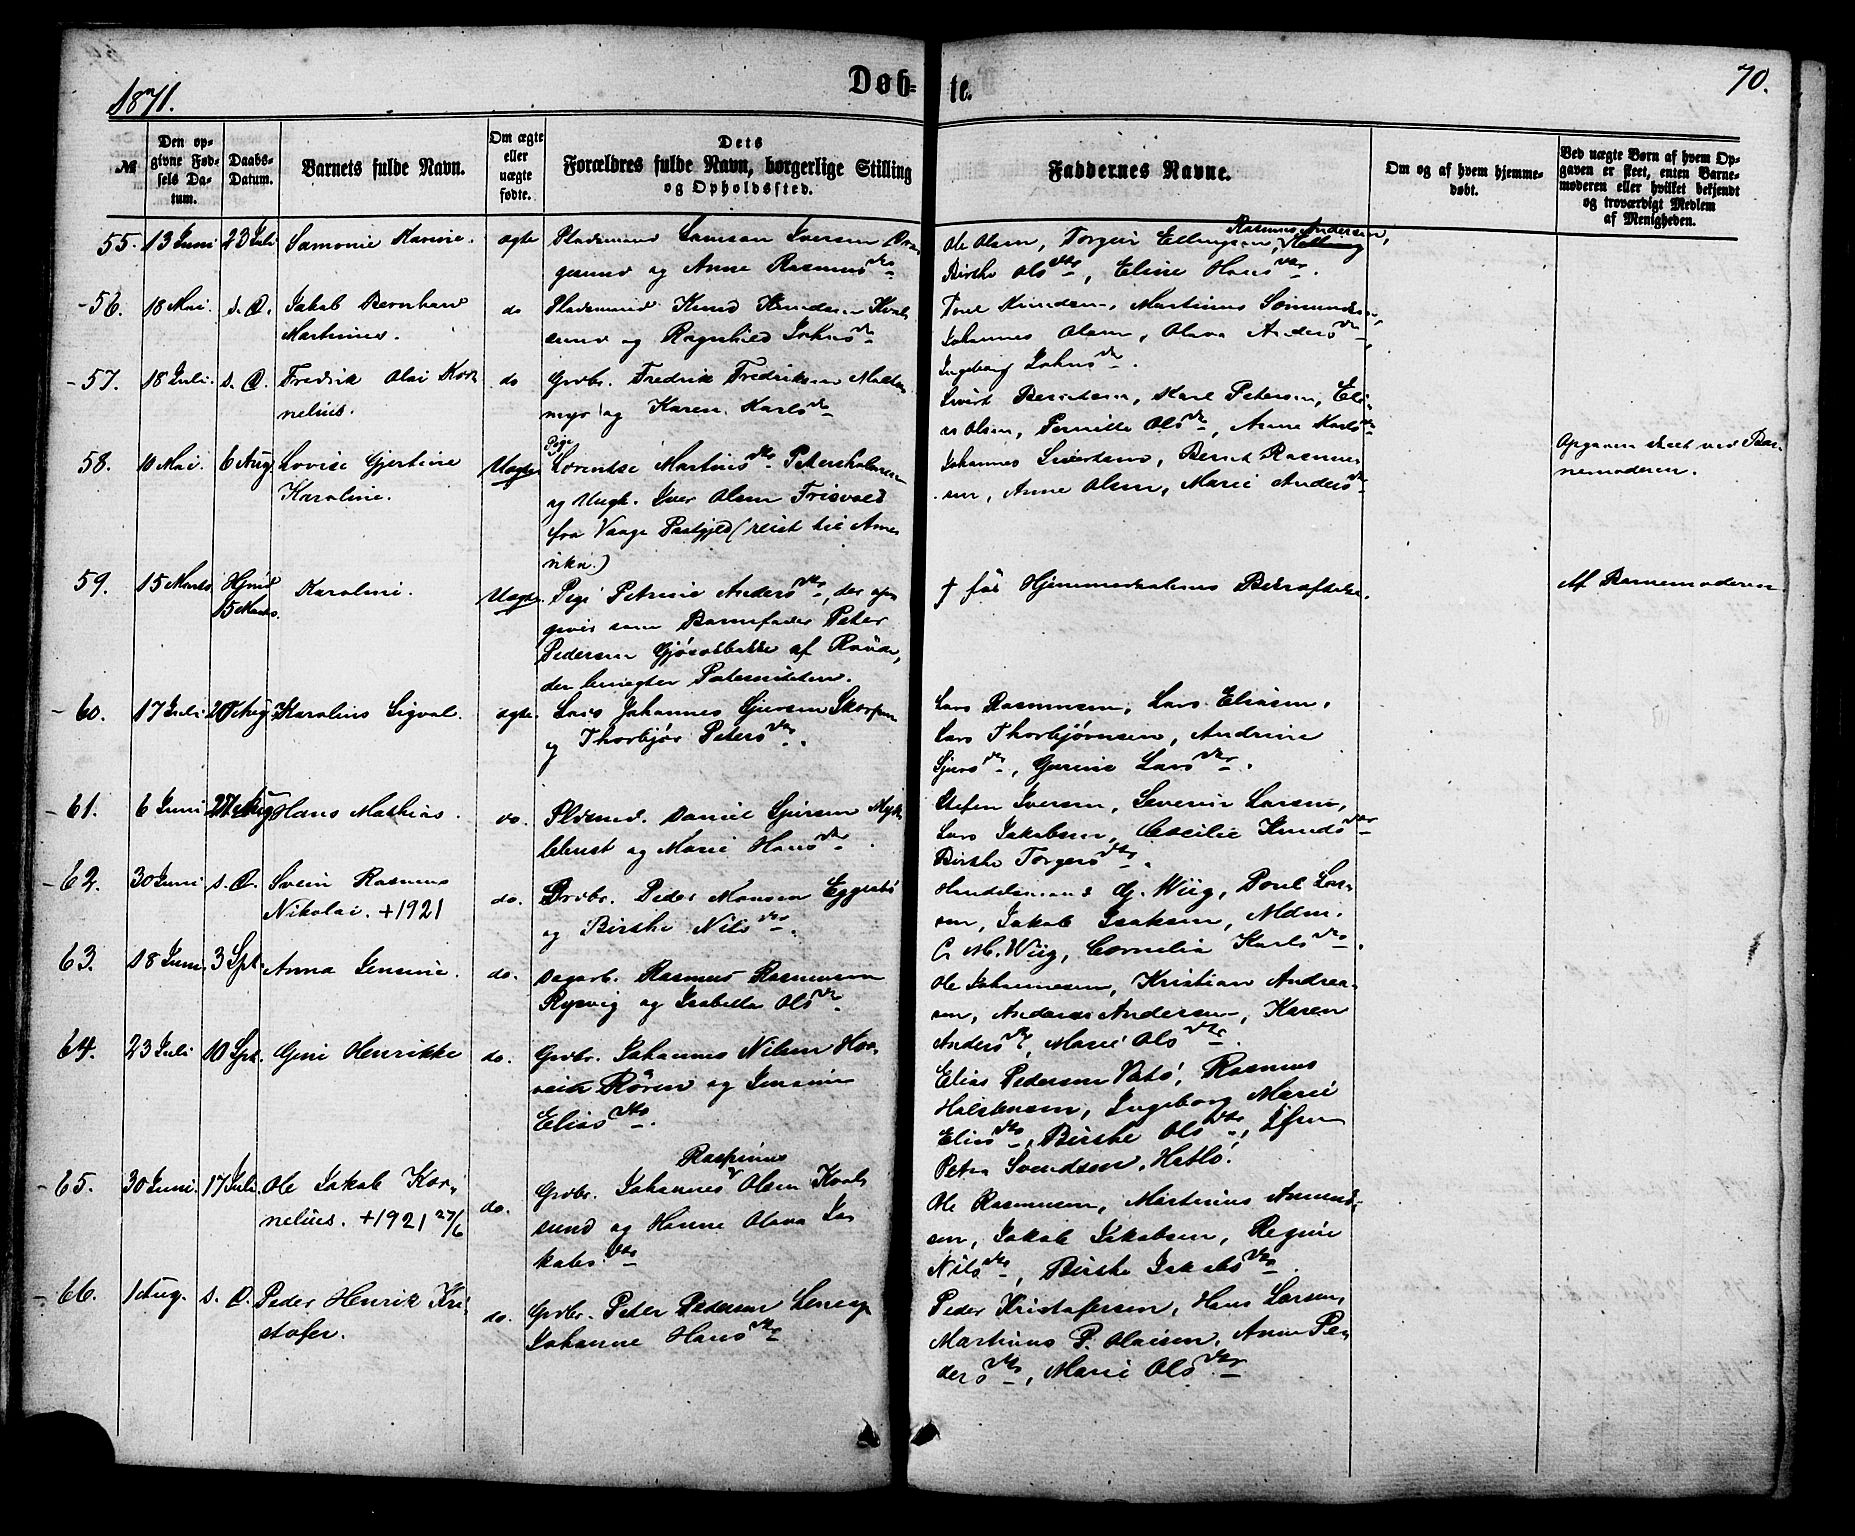 1871.
Døb-
te.
70.
№
Den op-
givne Fød-
sels Da-
tum.
Daabs-
Datum.
Barnets fulde Navn.
Om ægte
eller
uægte
fødte.
Dets
Forældres fulde Navn, borgerlige Stilling
og Opholdssted.
Faddernes Navne.
Om og af hvem hjemme-
døbt.
Ved uægte Børn af hvem Op-
gaven er skeet, enten Barne-
moderen eller hvilket bekjendt
og troværdigt Medlem
af Menigheden.
55. 13 Juni 23 Juli
ægte Pladsmand Samson Iversen
og Anne Rasmusdtr
Rasmus Andersen,
Ole Olsen, Torgeir Ellingsen,
Birthe Olsdtr, Eline Hansdtr.
56. 18 Mai. s. D. Jakob Bernhard
Martinus.
do Pladsmand Knud Knudsen Kval-
sund og Ragnhild Johnsdtr
Poul Knudsen, Martinus
Johannes Olsen, Olava Andersdtr,
Ingeborg Johnsdtr.
57. 18 Juli. s. D. Fredrik Olai Kor-
nelius.
do Grbr. Fredrik Fredriksen
myr og Karen Karlsdtr
Sivert Berntsen, Karl Petersen, Eli-
as Olsen, Pernille Olsdtr, Anne Karlsdtr
58. 10 Mai. 6 Aug. Lovise Gjertine
Karoline.
Uægte Pige
Lorentse Martinsdtr Petersholmen
og Ungk. Iver Olsen Frisvold
fra Vaage Pastgjeld (reist til Ame-
rika.)
Johannes Sivertsen, Bernt Rasmus-
sen, Anne Olsen, Marie Andersdtr
Opgaven skeet ved Bar-
nemoderen.
59. 15 Marts Hjmd
15 Marts. Karoline.
Uægte. Pige Petrine Andersdtr, der op-
giver som Barnefader Peter
Pedersen af
der benegter Paterniteten.
† før Hjemmedaabens Bekræftelse.
Af Barnemoderen
60. 17 Juli 20 Aug. Karolius Sigval.
ægte. Johannes Sjursen
og Thorbjør Petersdtr.
Lars Rasmussen, Lars Eliasen,
Lars Thorbjørnsen, Andrine
Sjursdtr, Gurine Larsdtr.
61. 6 Juni 27 Aug Hans Mathias.
do. Daniel Sjursen Myk-
lebust og Marie Hansdtr.
Stefen Iversen, Severin Larsen,
Lars Jakobsen, Cecilie Knudsdtr
Birthe Torgersdtr.
62. 30 Juni s. D. Svein Rasmus
Nikolai. +1921
do. Brbr. Peder Monsen Eggesbø
og Birthe Nilsdtr.
Handelsmand G. Wiig, Poul Lar-
sen, Jakob Isaksen, Mdm.
C. M. Wiig, Cornelia Karlsdtr.
63. 18 Juni 3 Spt. Anna Jensine.
do. Dagarb. Rasmus Rasmussen
Røsvig og Isabella Olsdtr.
Ole Johannesen, Kristian Andrea-
sen, Anders Andersen, Karen
Andersdtr, Marie Olsdtr.
64. 23 Juli 10 Spt. Gine Henrikke
do. Grbr. Johannes Nilsen
Røren og Jensine
Eliasdtr.
Elias Pedersen Vatø, Rasmus
Holstensen, Ingeborg Marie
Eliasdtr, Birthe Olsdtr, Jfru
Petra Svendsen, Hatlø.
65. 30 Juni. 17 Juli. Ole Jakob Kor-
nelius. +1921 27/6
do. Raspinus
Grbr. Johannes Olsen Kval-
sund og Hanne Olava Ja-
kobsdtr.
Ole Rasmussen, Martinus Amund-
sen, Jakob Jakobsen, Regine
Nilsdtr, Birthe Jakobsdtr.
66. 1 Aug. s. D. Peder Henrik Kri-
stofer.
do. Grbr. Peter Pedersen
Johanne Hansdtr
Peder Kristofersen, Hans Larsen,
Martinus P. Olaisen, Anne Pe-
dersdtr, Marie Olsdtr